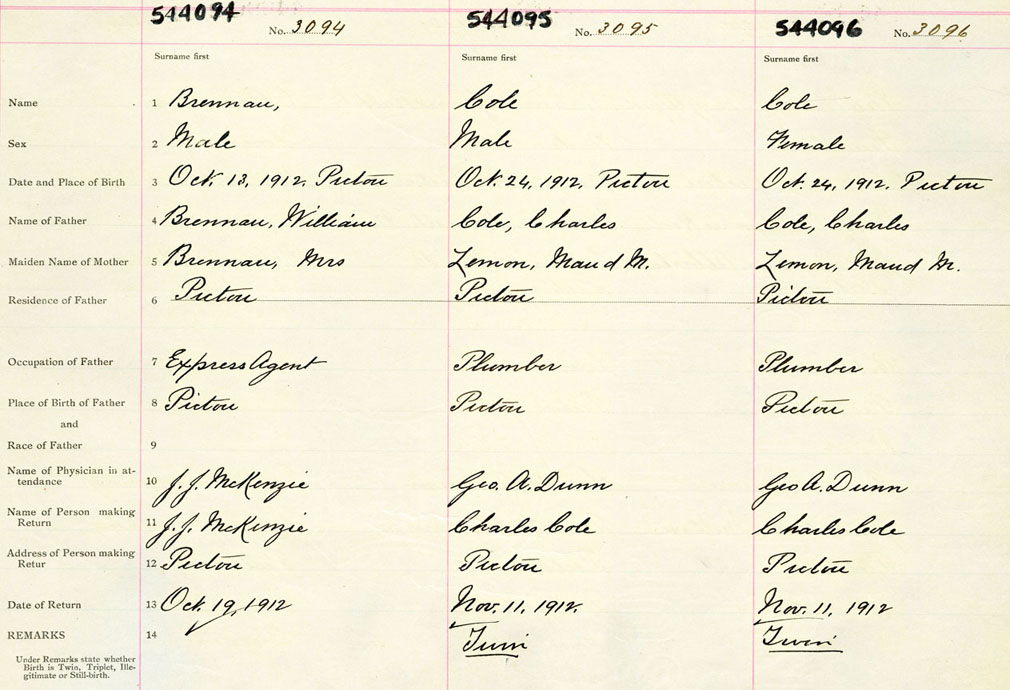 544094 No. 3094 544095 No. 3095 544096 No. 3096
Surname first Surname first Surname first
Name 1 Brennan, Cole Cole
Sex 2 Male Male Female
Date and Place of Birth 3 Oct. 13, 1912. Pictou Oct. 24, 1912. Pictou Oct. 24, 1912. Pictou
Name of Father 4 Brennan, William Cole, Charles Cole, Charles
Maiden Name of Mother 5 Brennan, Mrs Lemon, Maud M. Lemon, Maud M.
Residence of Father 6 Pictou Pictou Pictou
Occupation of Father 7 Express Agent Plumber Plumber
Place of Birth of Father 8 Pictou Pictou Pictou
and
Race of Father 9
Name of Physician in at-
tendance 10 J. J. McKenzie Geo. A. Dunn Geo A. Dunn
Name of Person making
Return 11 J. J. McKenzie Charles Cole Charles Cole
Address of Person making
Retur 12 Pictou Pictou Pictou
Date of Return 13 Oct. 19, 1912 Nov. 11, 1912. Nov. 11, 1912
REMARKS 14 Twin Twin
Under Remarks state whether
Birth is Twin, Triplet, Ille-
gitimate or Still-birth.